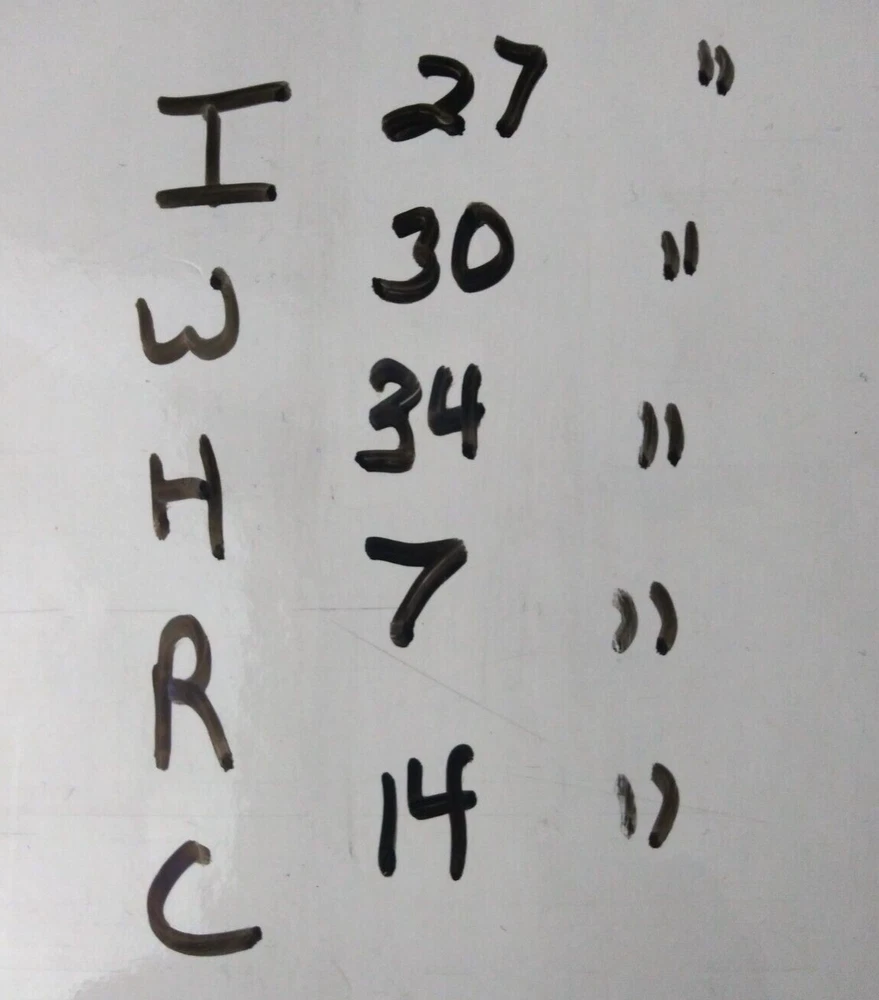 I 27 "
W 30 "
H 34 "
R 7 "
C 14 "